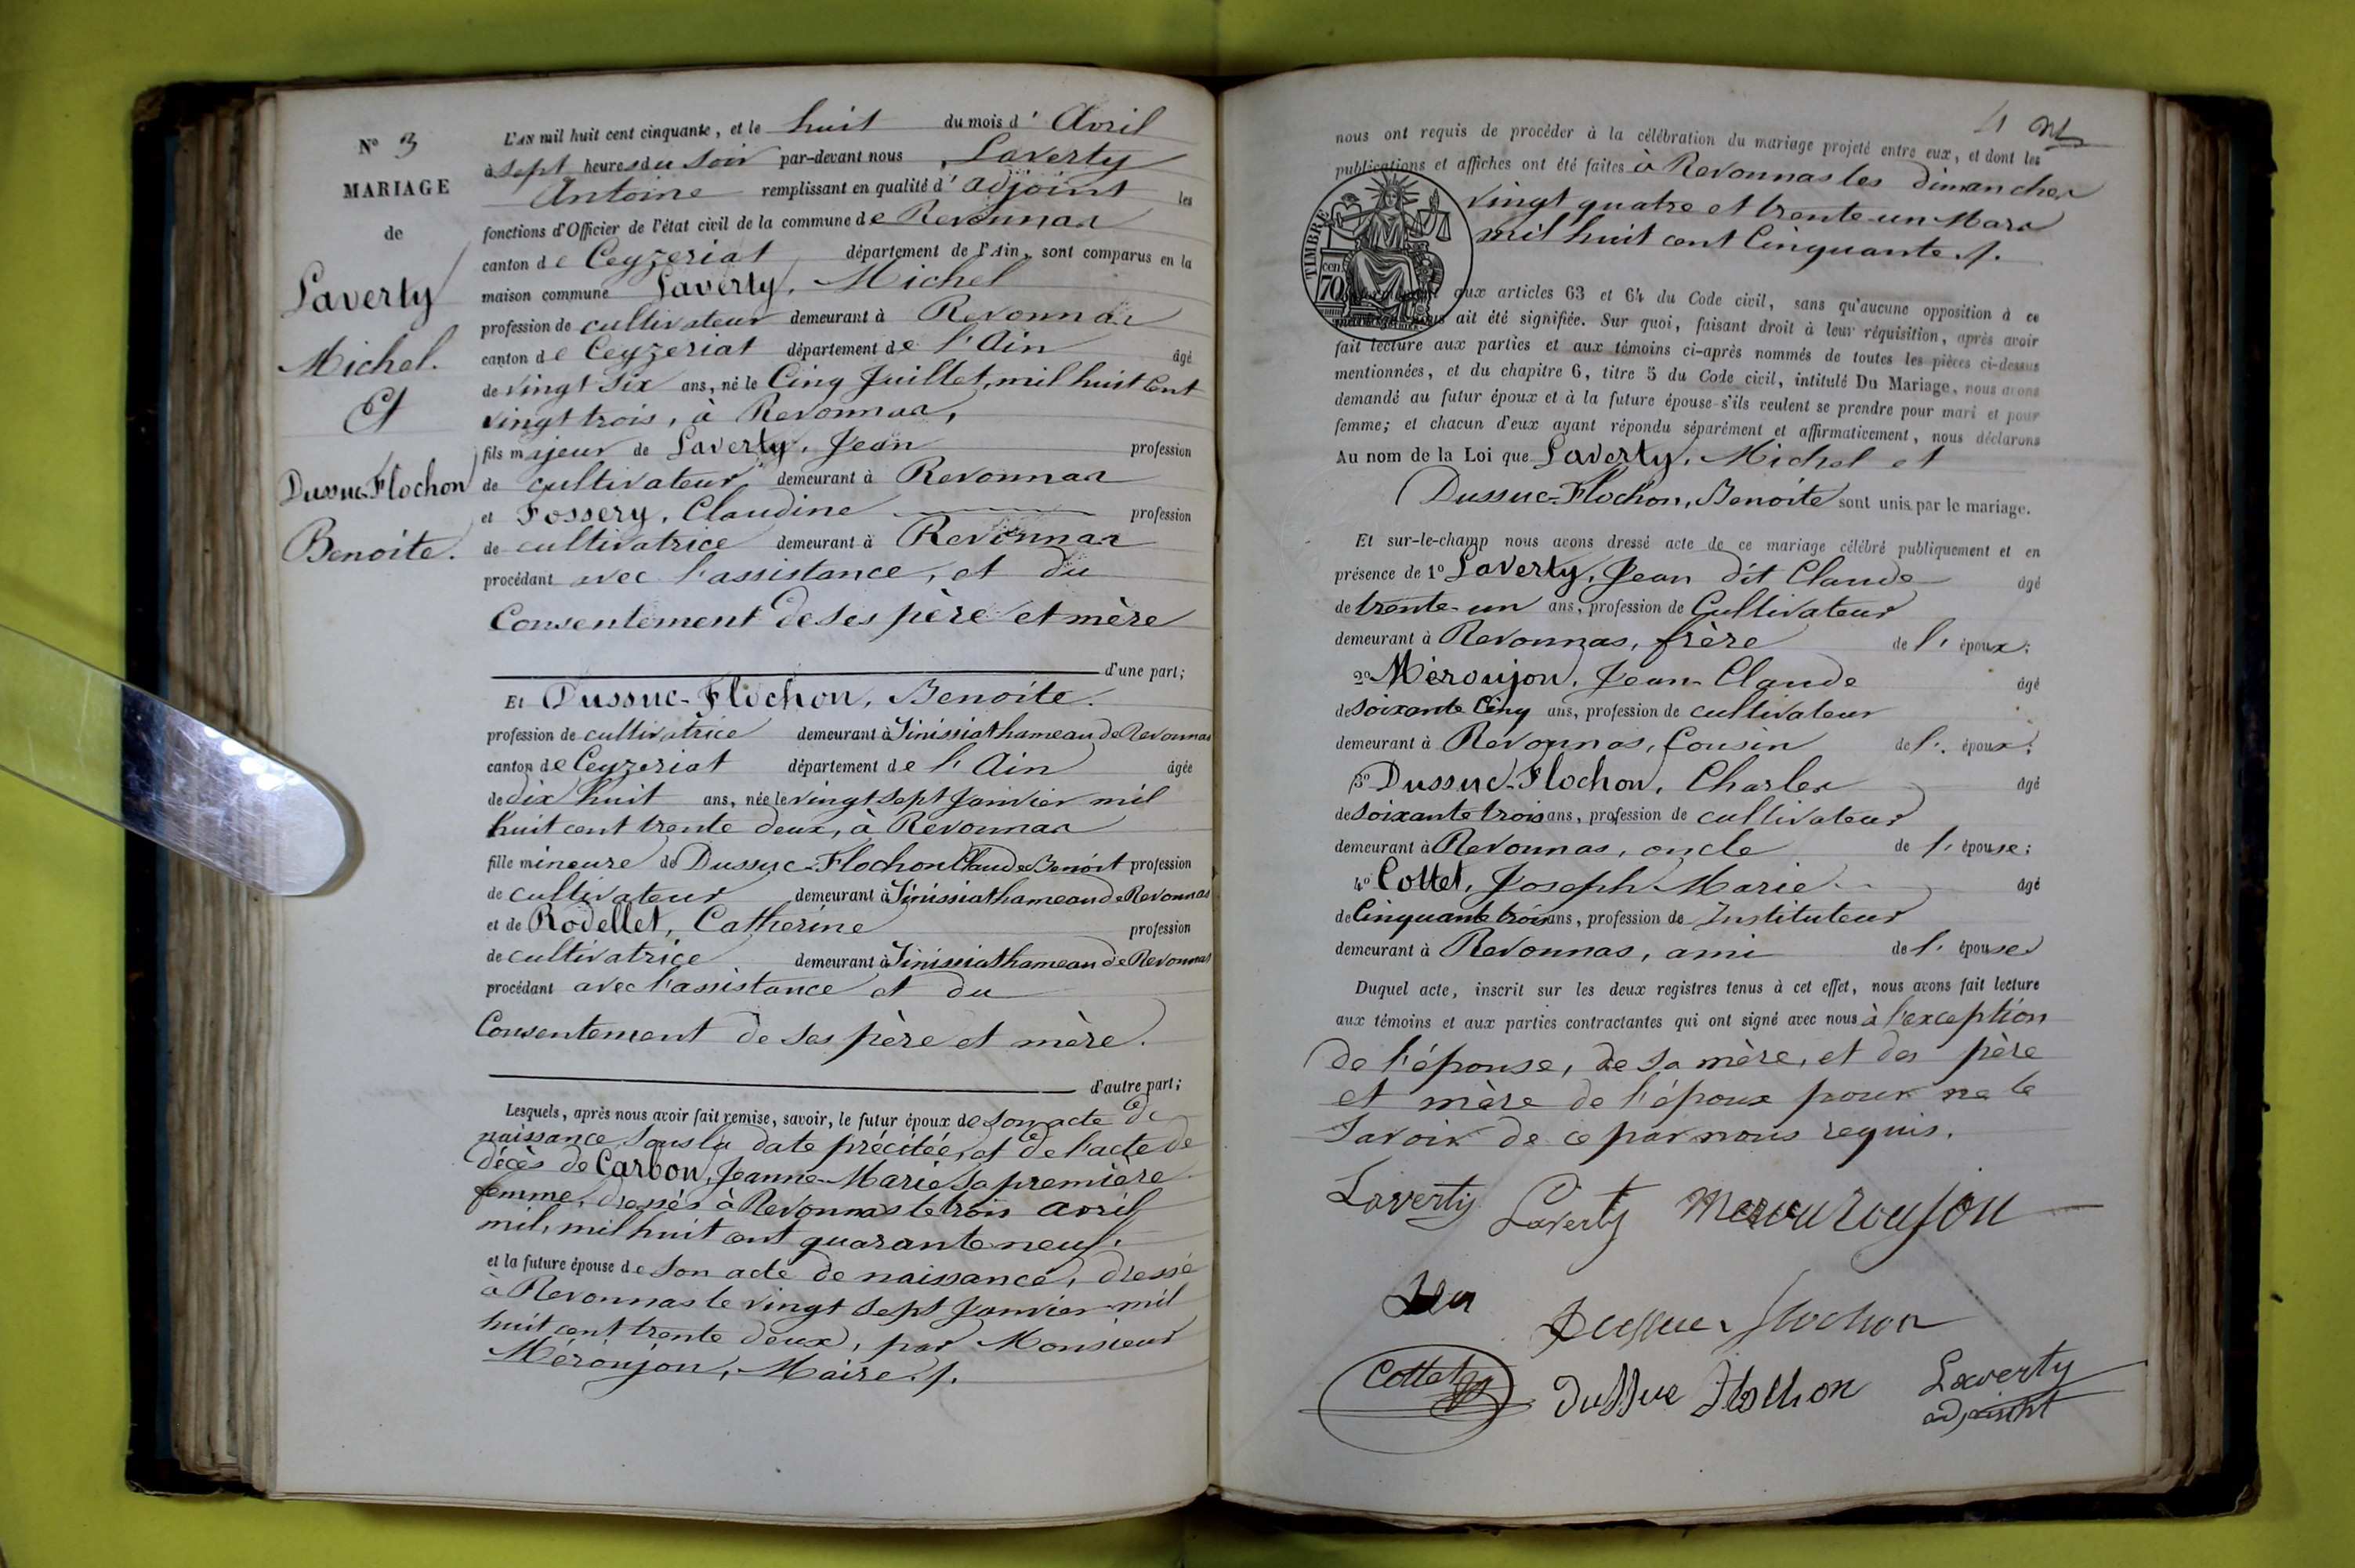 N° 3
MARIAGE
de
Laverty
Michel.
Et
Dussuc-Flochon
Benoite.
L'AN mil huit cent cinquante, et le huit du mois d' Avril
à sept heures du soir par-devant nous, Laverty
Antoine remplissant en qualité d' adjoint les
fonctions d'Officier de l'état civil de la commune de Revonnas
canton de Ceyzeriat département de l'Ain, sont comparus en la
maison commune Laverty, Michel
profession de cultivateur demeurant à Revonnas
canton de Ceyzeriat département de l'Ain âgé
de vingt six ans, né le Cinq Juillet, mil huit Cent
vingt trois, à Revonnas,
fils majeur de Laverty, Jean profession
de cultivateur demeurant à Revonnas
et Fossery, Claudine profession
de cultivatrice demeurant à Revonnas
procédant avec l'assistance, et du
Consentement de ses père et mère
d'une part;
Et Dussuc-Flochon, Benoite.
profession de cultivatrice demeurant à Sinissiat hameau de Revonnas
canton de Ceyzeriat département de l'Ain âgée
de dix huit ans, née le vingt sept Janvier mil
huit cent trente deux, à Revonnas
fille mineure de Dussuc-Flochon Claude Benoit profession
de cultivateur demeurant à Sinissiat hameau de Revonnas
et de Rodellet, Catherine profession
de cultivatrice demeurant à Sinissiat hameau de Revonnas
procédant avec l'assistance et du
Consentement de ses père et mère.
d'autre part;
Lesquels, après nous avoir fait remise, savoir, le futur époux de son acte de
naissance sous la date précitée, et de l'acte de
décès de Carbon, Jeanne-Marie sa première
femme, dressés à Revonnas le trois avril
mil, mil huit cent quarante neuf.
et la future épouse de son acte de naissance, dressé
à Revonnas le vingt sept Janvier mil
huit cent trente deux, par Monsieur
Méroujon, Maire./.
4
nous ont requis de procéder à la célébration du mariage projeté entre eux, et dont les
publications et affiches ont été faites à Revonnas les dimanches
vingt quatre et trente-un Mars
mil huit cent Cinquante./.
TIMBRE
cen
70
aux articles 63 et 64 du Code civil, sans qu'aucune opposition à ce
mariage nous ait été signifiée. Sur quoi, faisant droit à leur réquisition, après avoir
fait lecture aux parties et aux témoins ci-après nommés de toutes les pièces ci-dessus
mentionnées, et du chapitre 6, titre 5 du Code civil, intitulé Du Mariage, nous avons
demandé au futur époux et à la future épouse s'ils veulent se prendre pour mari et pour
femme; et chacun d'eux ayant répondu séparément et affirmativement, nous déclarons
Au nom de la Loi que Laverty, Michel et
Dussuc-Flochon, Benoite sont unis par le mariage.
Et sur-le-champ nous avons dressé acte de ce mariage célébré publiquement et en
présence de 1° Laverty, Jean dit Claude âgé
de trente-un ans, profession de Cultivateur
demeurant à Revonnas, frère de l'époux;
2° Méroujon, Jean-Claude âgé
de soixante Cinq ans, profession de cultivateur
demeurant à Revonnas, Cousin de l'époux;
3° Dussuc-Flochon, Charles âgé
de soixante trois ans, profession de cultivateur
demeurant à Revonnas, oncle de l'épouse;
4° Cottet, Joseph Marie âgé
de Cinquante trois ans, profession de Instituteur
demeurant à Revonnas, ami de l'épouse
Duquel acte, inscrit sur les deux registres tenus à cet effet, nous avons fait lecture
aux témoins et aux parties contractantes qui ont signé avec nous à l'exception
de l'épouse, de sa mère, et des père
et mère de l'époux pour ne le
savoir de ce par nous requis.
Laverty Laverty
Dussuc flochon
Cottet Dussuc Flochon Laverty
adjoint